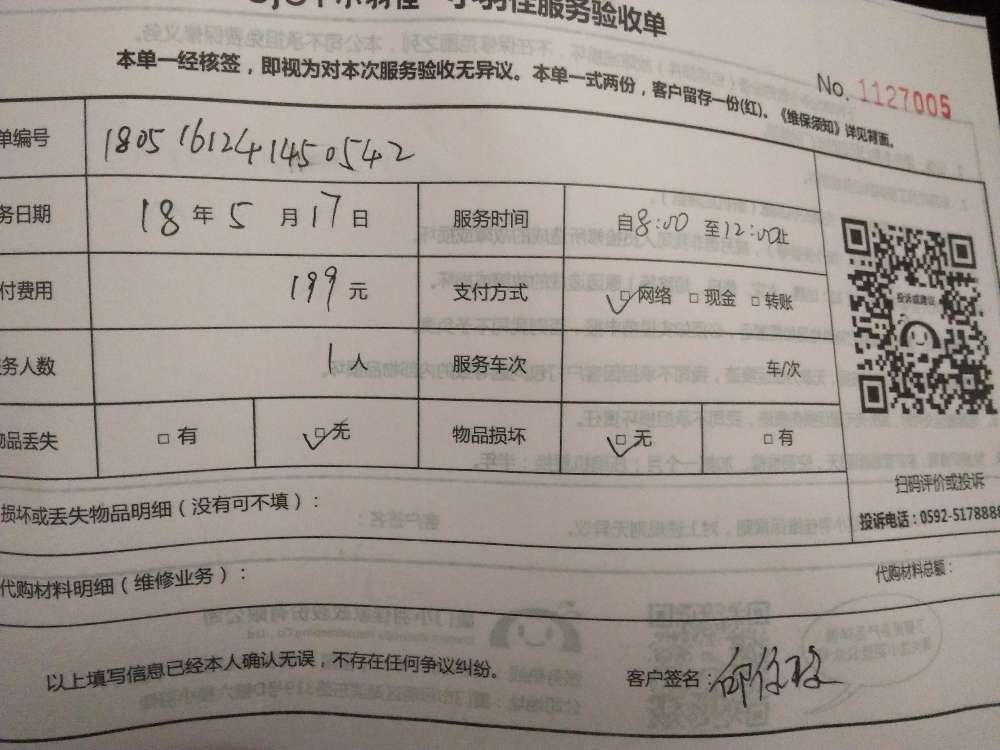 小羽佳服务验收单
本单一经核签，即视为对本次服务验收无异议。本单一式两份，客户留存一份(红)。《维保须知》详见背面。
No. 1127005
单编号 1805161241450542
务日期 18 年 5 月 17 日 服务时间 自8:00 至12:00止
付费用 199 元 支付方式 □网络 □现金 □转账
务人数 1 人 服务车次 车/次
物品丢失 □有 □无 物品损坏 □无 □有
投诉或建议
扫码评价或投诉
投诉电话：0592-5178888
损坏或丢失物品明细（没有可不填）：
代购材料明细（维修业务）： 代购材料总额：
以上填写信息已经本人确认无误，不存在任何争议纠纷。 客户签名：